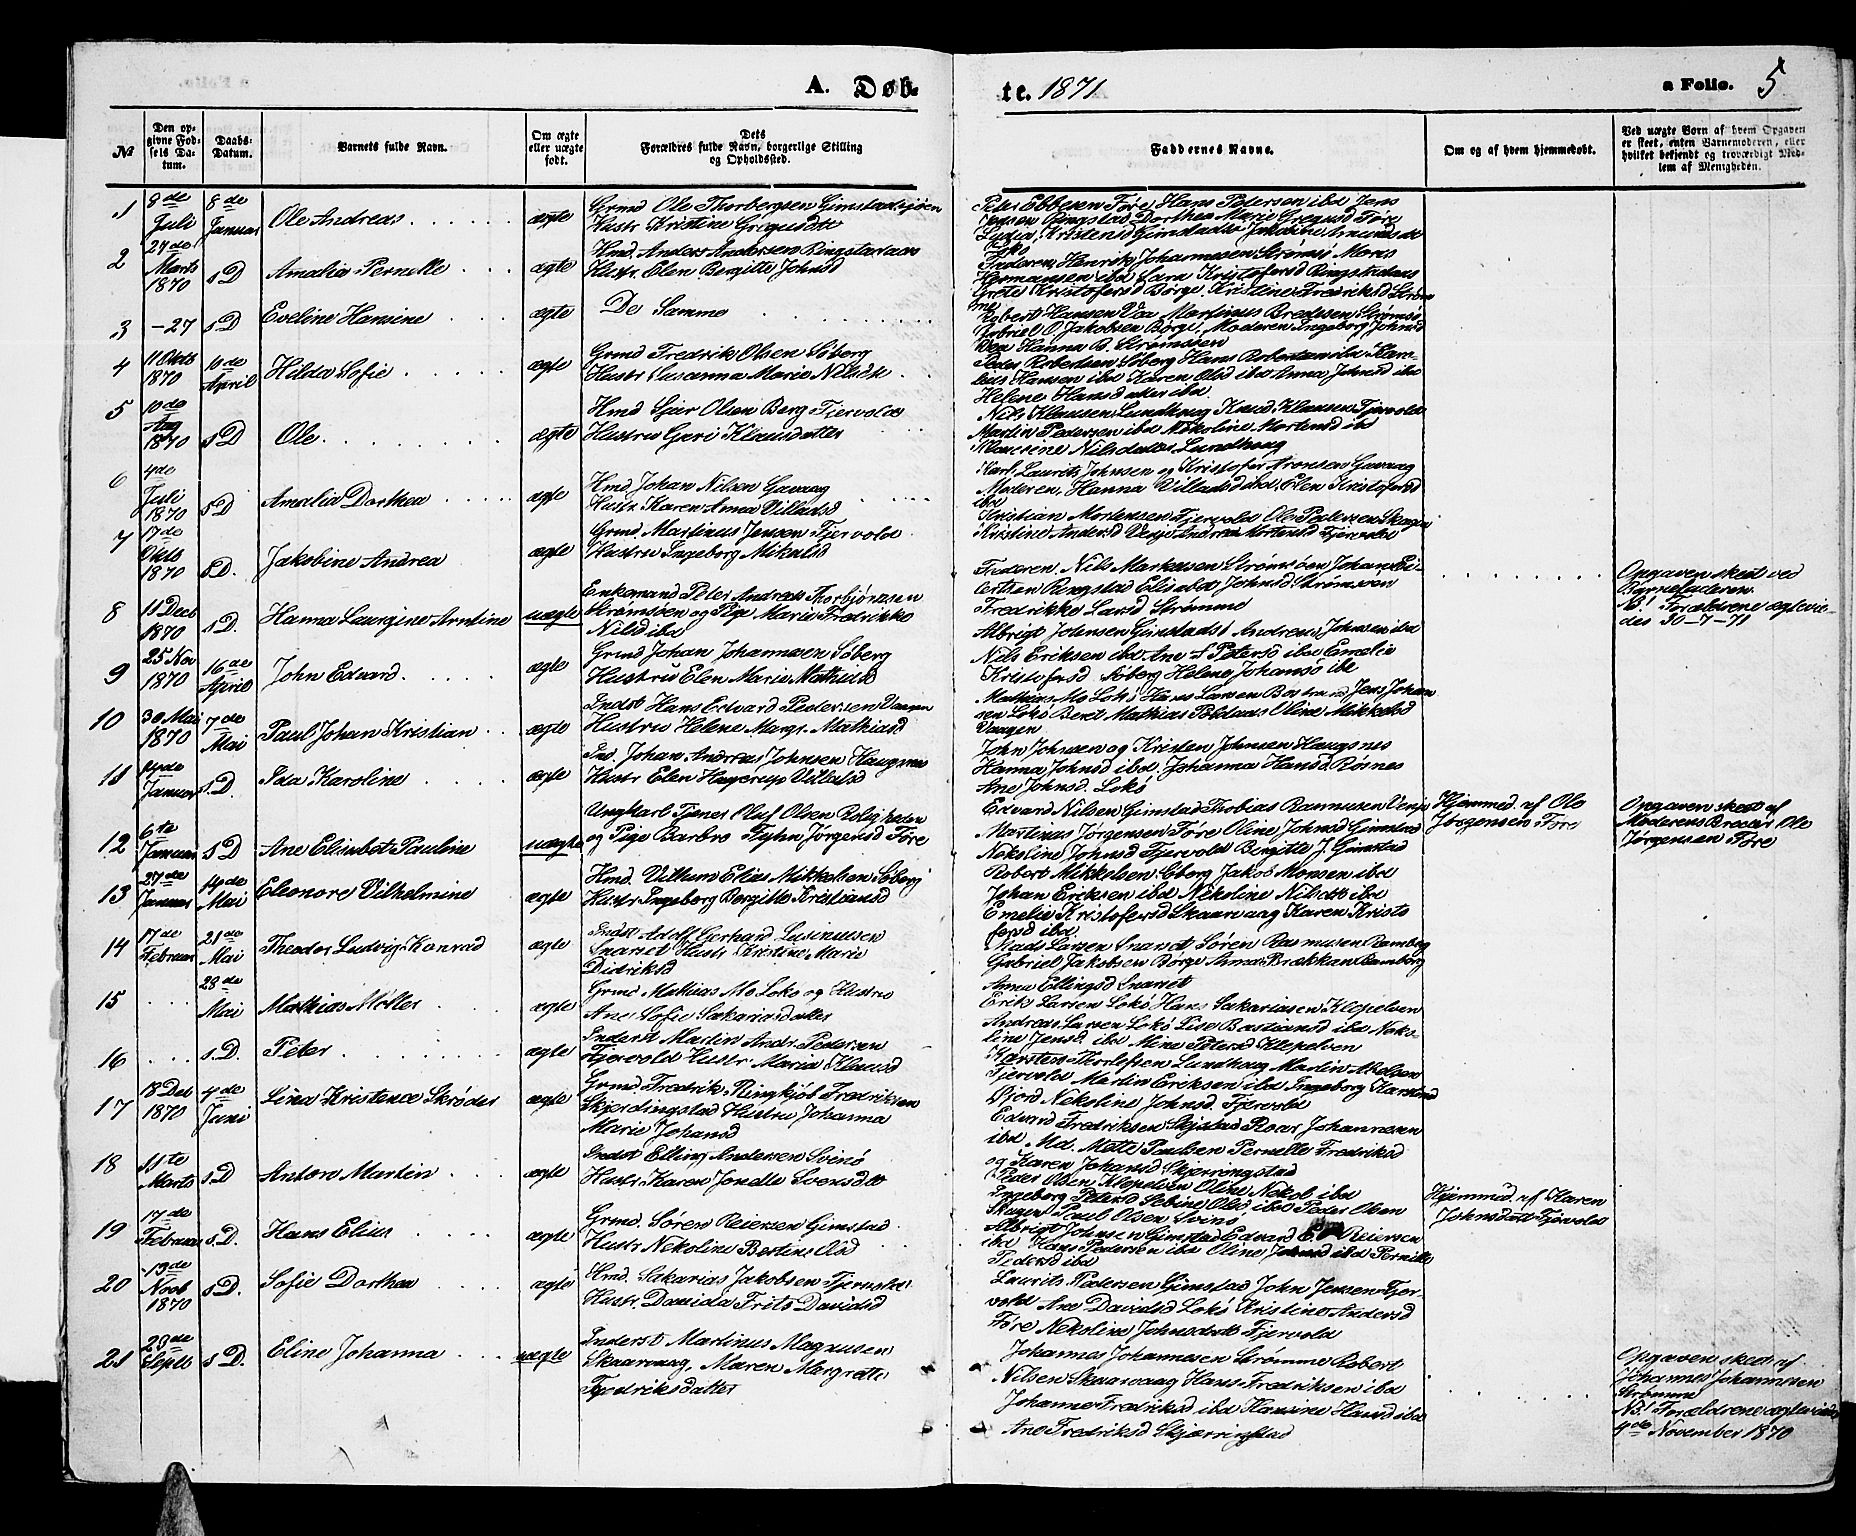 A. Døb-
te. 1871
a Folio. 5
№
Den op-
givne Fød-
sels Da-
tum.
Daabs-
Datum.
Barnets fulde Navn.
Om ægte
eller uægte
født.
Dets
Forældres fulde Navn, borgerlige Stilling
og Opholdssted.
Faddernes Navne.
Om og af hvem hjemmedøbt.
Ved uægte Børn af hvem Opgaven
er skeet, enten Barnemoderen, eller
hvilket bekjendt og troværdigt Med-
lem af Menigheden.
1
8de
Juli
8de
Januar
Ole Andreas
ægte
Grmd Ole Thorbergsen Gimstadsjøen
Hustr Kristine Gregusdtt
Peter Ebbesen Føre Hans Petersen ibd Jens
Jensen Ringstad Dorthea Marie Gregusd Føre
2
24de
Marts
1870
s D
Amalia Pernelle
ægte
Hmd. Anders Andersen Ringstadaas
Hustr. Elen Bergitte Johnsd
Faderen, Henrik Johannesen Strømsø Mons
Hermansen ibd Sara Kristofersd Ringstadaas
Grete Kristofersd Børge. Kristine Fredriksd Strøm
me
3
-27
s D
Eveline Hansine
ægte
De Samme
Robert Hansen Vea Martinus Bredesen Strømsø
Gabriel O Jakobsen Børge, Moderen Ingeborg Johnsd
Vea Hanna B. Strømsøen
4
11 Oktb
1870
10de
April
Hilda Sofie
ægte
Grmd Fredrik Olsen Søberg
Hustr Susanna Marie Nilsdt
Peder Robertsen Søberg Hans Robertsen ibd
Hansen ibd Karen Olsd ibd Anna Johnsd ibd
Helene Hansdatter ibd
5
10de
Aug
1870
s D
Ole
ægte
Hmd Sjur Olsen Berg Fjervold
Hustru Guri Klausdatter
Nils Klausen Lundhaug Knud Klausen Fjervold
Martin Pedersen ibd Nikoline Mortensd ibd
Maurine Nilsdatter Lundhaug
6
4de
Juli
1870
s D
Amalia Dorthea
ægte
Hmd Johan Nilsen Gavaag
Hustr Karen Anna Villadsd
Karl Laurits Johnsen og Kristofer Aronsen Gavaag
Moderen, Hanna Villadsd ibd, Elen Kristofersd
ibd
7
17de
Oktb
1870
s D.
Jakobine Andrea
ægte
Grmd. Martinus Jensen Fjervold
Hustru Ingeborg Mikalsd
Kristian Mortensen Fjervold Ole Pedersen Skagen
Kristine Andersd Vesje Andrea Mortensd Fjervold
8
11 Decb
1870
s D.
Hanna Laurgine Arntine
uægte
Enkemand Peter Andreas Torbjørnsen
Strømsøen og Pige Marie Fredrikke
Nilsd ibd
Faderen Nils Markusen Strømsøen Johan Ei-
lertsen Ringstad Elisabet Johnsd Strømsøen
Fredrikke Larsd Strømme
Opgaven skeet ved
Barnefaderen.
NB! Forældrene ægtevie-
des 30-7-71
9
25 Nov
1870
16de
April
John Edvard
ægte
Grmd Johan Johannesen Søberg
Hustru Elen Marie Mathisd
Albrigt Johnsen Gimstad Andreas Johnsen ibd
Nils Eriksen ibd Ane S Petersd ibd Emelie
Kristofersd Søberg Helene Johansd ibd
10
30 Mai
1870
7de
Mai
Paul Johan Kristian
ægte
Indst Hans Edvard Pedersen Vaagen
Hustru Helene Margr. Mathiasd
Mathias Mo Lokø Hans Larsen Jens Johan
sen Lokø Beret Mathias Oline Mikkelsd
Vaagen
11
14de
Januar
s.D.
Ida Karoline
ægte
Ind. Johan Andreas Johnsen Haugsnes
Hustr Elen Hagerup Villadsd
John Johnsen og Kristen Johnsen Haugsnes
Hanna Johnsd ibd. Johanna Hansd Røsnes
Ane Johnsd. Lokø
12
6te
Januar
s D
Ane Elisabet Pauline
uægte
Ungkarl Tjener Oluf Olsen Roligheden
og Pige Barbro Flyhn Jørgensd Føre
Edvard Nilsen Gimstad Thobias Rasmussen Vesje
Martinus Jørgensen Føre Oline Johnsd Gimstad
Nekoline Johnsd Fjervold Bergitte J. Gimstad
Hjemmed. af Ole
Jørgensen Føre
Opgaven skeet af
Moderens Broder Ole
Jørgensen Føre
13
27de
Januar
14de
Mai
Eleonore Vilhelmine
ægte
Hmd. Villum Elias Mikkelsen Søberg
Hustr Ingeborg Bergitte Kristiansd
Robert Mikkelsen Søberg Jakob Monsen ibd
Johan Eriksen ibd Nekoline Nilsdtt ibd
Emelie Kristofersd Skaarvaag Karen Kristo
fersd ibd
14
17de
Februar
21de
Mai
Theodor Ludvig Konrad
ægte
Indst Adolf Gerhard Lusinusen
Snarset Hustr Kristine Marie
Didriksd
Mads Larsen Snarset Søren Rasmusen Ramberg
Gabriel Jakobsen Børge Anna Brækkan Ramberg
Anna Ellingsd Snarset
15
28de
Mai
Mathias Møller
ægte
Grmd Mathias Mo Lokø og Hustru
Ane Sofie Sakariasdatter
Erik Larsen Lokø Hans Sakariasen Klepelven
Andreas Larsen Lokø Lise Bastiansd ibd Neko-
line Jensd. ibd Mine Petersd Klepelven
16
s. D.
Peter
ægte
Inderst Martin Andr. Pedersen
Fjervold Hustr Maria Klausd
Karsten Thorlefsen Lundhaug Martin Abelsen
Fjervold Martin Eriksen ibd Ingeborg
Fjord Nekoline Johnsd. Fjervold
17
18 Deb
1870
4de
Juni
Lina Kristence Skrøder
ægte
Grmd. Fredrik Ringkjøb Fredriksen
Skjerdingstad Hustru Johanna
Marie Johansd
Edvard Fredriksen Skjstad Roar Johannesen
ibd Md. Mette Paulsen Pernelle Fredriksd
og Karen Johansd Skjerringstad
18
11te
Marts
s. D
Anton Martin
ægte
Indst Elling Andersen Svinø
Hustr. Karen Jonette Svensdtt
Peder Olsen Klepelven Oline Nekol ibd
Ingeborg Petersd Sebine Olsd ibd Peder Olsen
Skagen Paul Olsen Svinø
Hjemmed. af Karen
Johnsdatt Fjervold
19
17de
Februar
s. D.
Hans Elius
ægte
Grmd. Søren Reiersen Gimstad
Hustr Nekoline Bertine Olsd
Albrigt Johnsen Gimstad Edvard E. Reiersen
ibd Hans Pedersen ibd Oline Johnsd ibd Pernille
Pedersd ibd
20
19de
Novb
1870
s D.
Sofie Dorthea
ægte
Hmd. Sakarias Jakobsen Fjervold
Hustr. Davida Frits Davidsd
Laurits Pedersen Gimstad John Jensen Fjer-
vold Ane Davidsd Lokø Kristine Andersd
Føre Nekoline Johnsdatt Fjervold
21
23de
Septb
s D.
Eline Johanna
uægte
Inderst Martinus Magnusen
Skaarvaag, Maren Margrette
Fredriksdatter
Johannes Johannesen Strømme Robert
Nilsen Skaarvaag Hans Fredriksen ibd
Johanne Fredriksd ibd Hansine Hansd ibd
Ane Fredriksd Skjærringstad
Opgaven skeet af
Johannes Johannesen
Strømme
NB! Forældrene ægteviede
4de November 1870